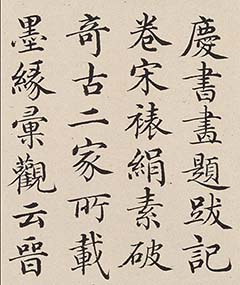 慶書畫題跋記
卷宋裱絹素破
奇古二家所載
墨緣彙觀云晉